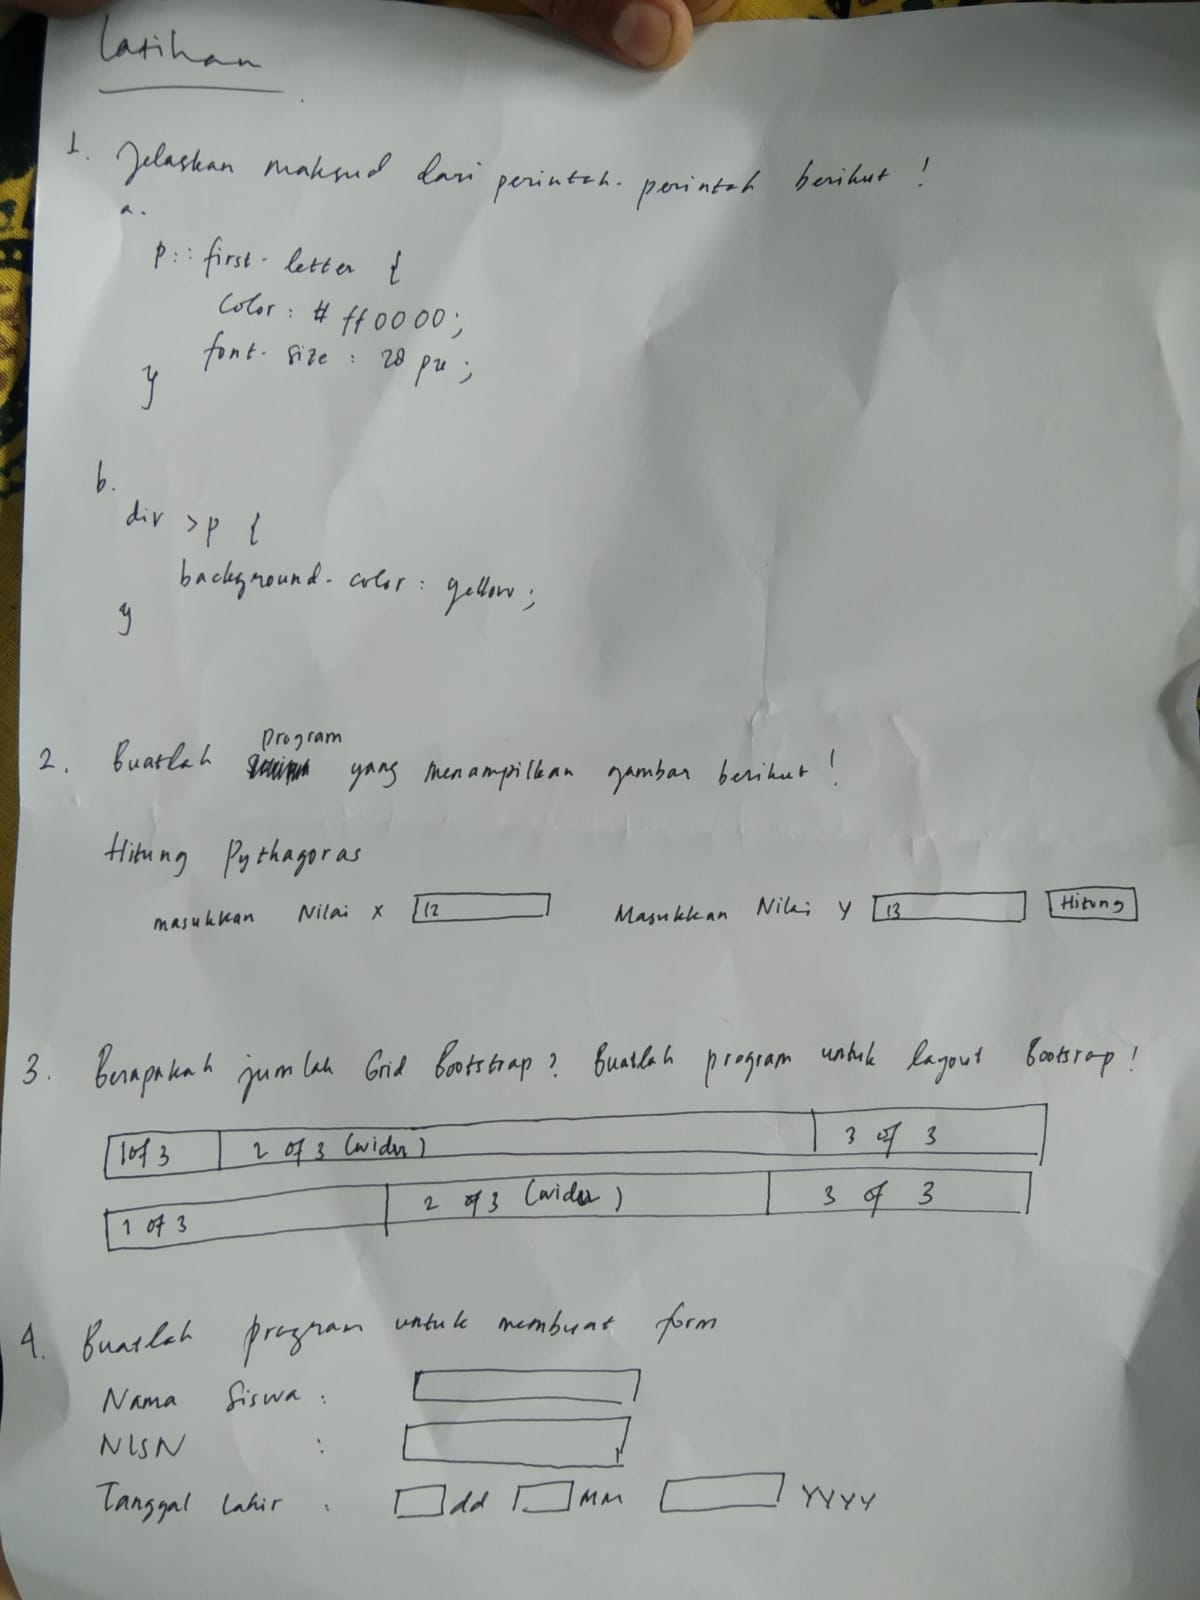 Latihan
1. Jelaskan maksud dari perintah-perintah berikut!
a.
p::first-letter {
color: #ff0000;
font-size: 28 px;
}
b.
div >p {
background-color: yellow;
}
program
2. Buatlah yang menampilkan gambar berikut!
Hitung Pythagoras
masukkan Nilai x 12 Masukkan Nilai y 13 Hitung
3. Berapakah jumlah Grid Bootstrap? Buatlah program untuk layout Bootsrap!
1 of 3 2 of 3 (wider) 3 of 3
1 of 3 2 of 3 (wider) 3 of 3
4. Buatlah program untuk membuat form
Nama Siswa :
NISN :
Tanggal Lahir : dd MM YYYY